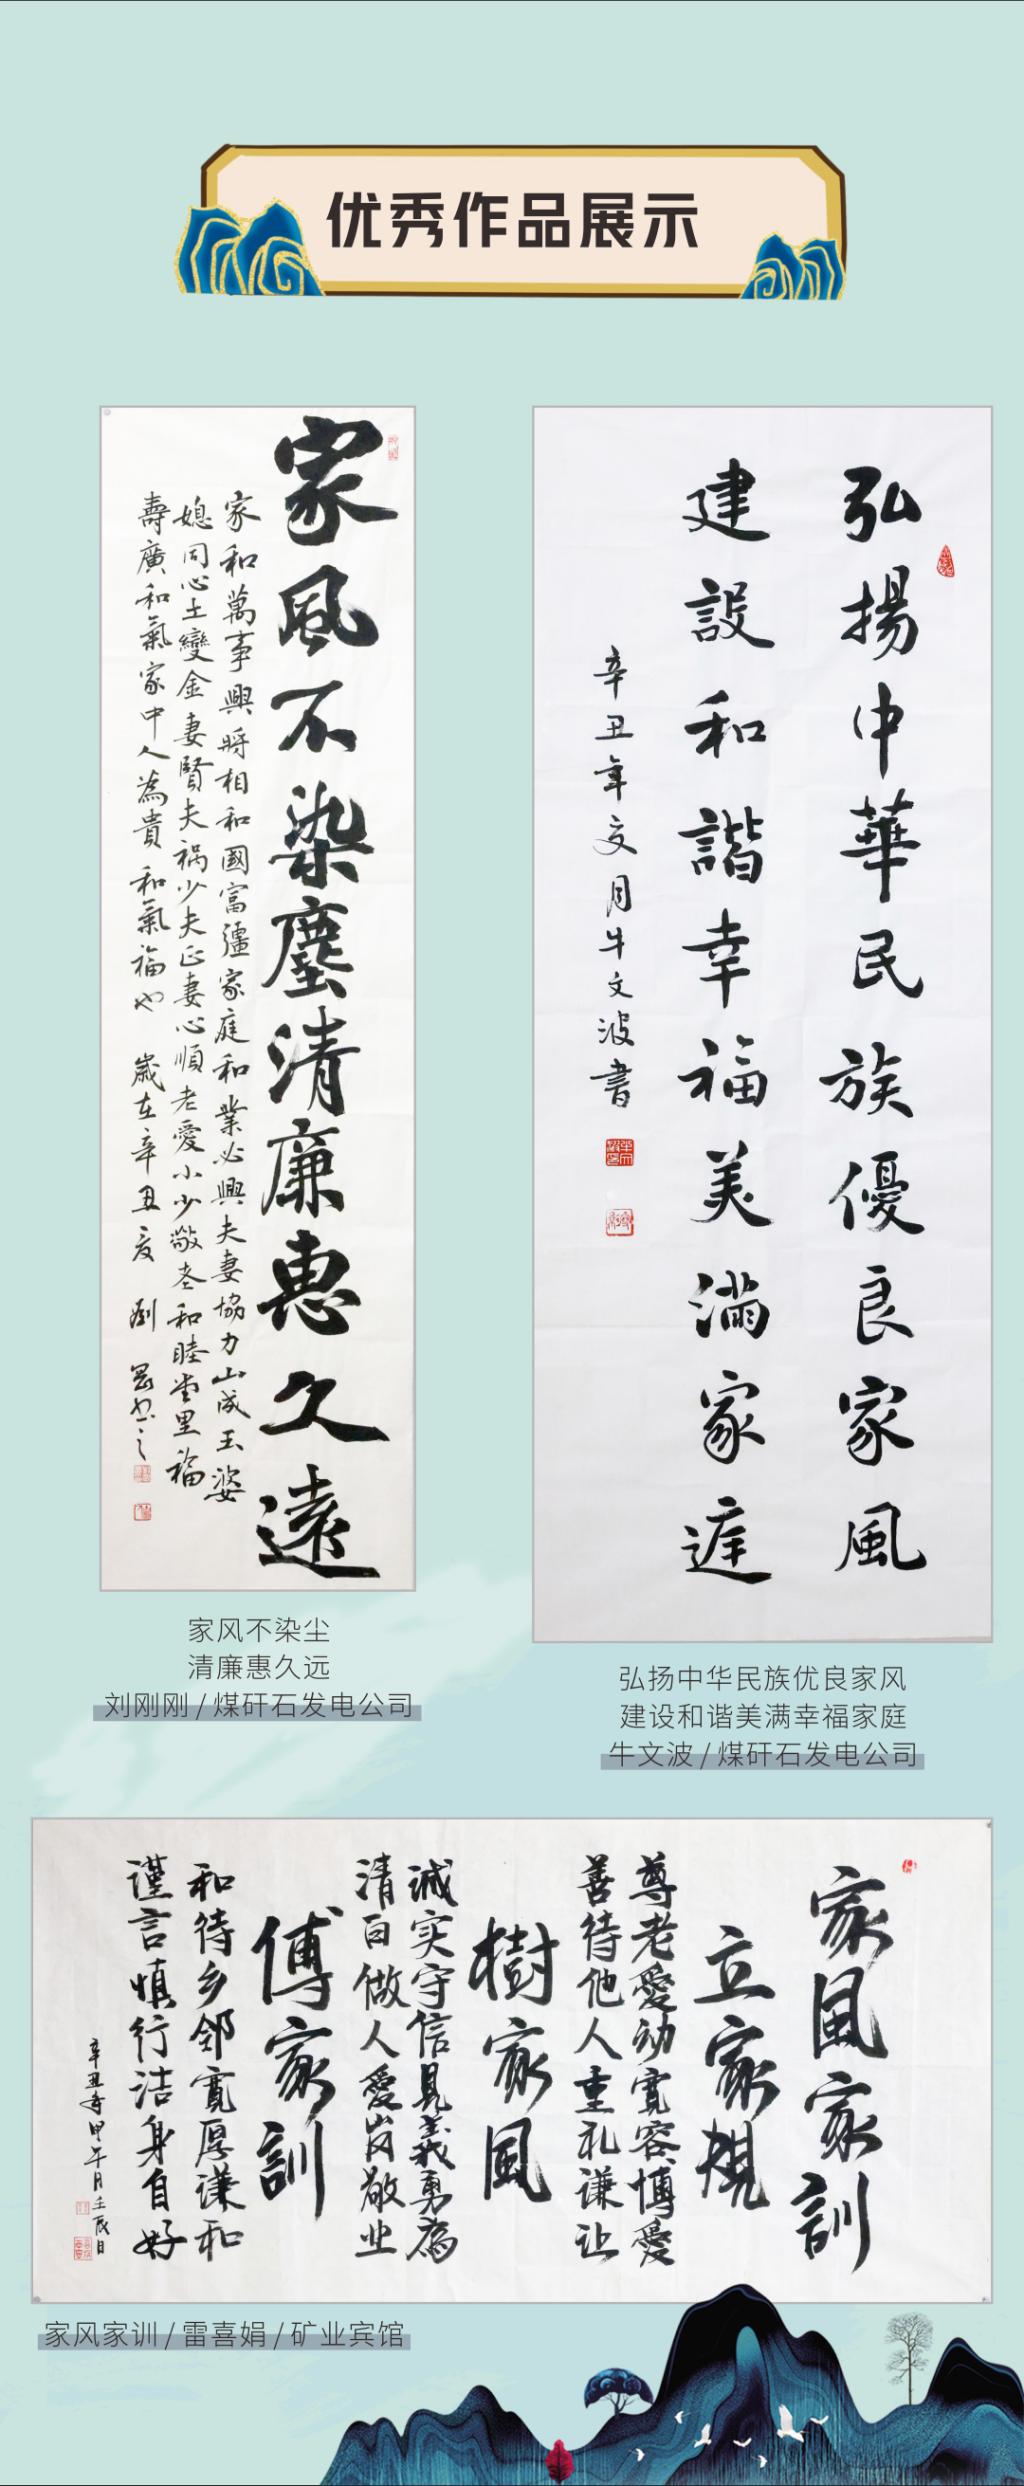 优秀作品展示
家風不染塵清廉惠久遠
家和萬事興將相和國富彊家庭和業必興夫妻協力山成玉婆
媳同心土變金妻賢夫祸少夫正妻心順老愛小少敬老和睦堂里福
壽廣和氣家中人為貴和氣福也 歲在辛丑夏 劉
弘揚中華民族優良家風
建設和諧幸福美满家庭
辛丑年夏月牛文波書
家风不染尘
清廉惠久远
刘刚刚/煤矸石发电公司
弘扬中华民族优良家风
建设和谐美满幸福家庭
牛文波/煤矸石发电公司
家風家訓
立家規
尊老愛幼寛容博愛
善待他人重礼谦让
樹家風
诚实守信見義勇為
清白做人愛岗敬业
傳家訓
和待乡邻寛厚谦和
谨言慎行洁身自好
辛丑年甲午月壬辰日
家风家训/雷喜娟/矿业宾馆